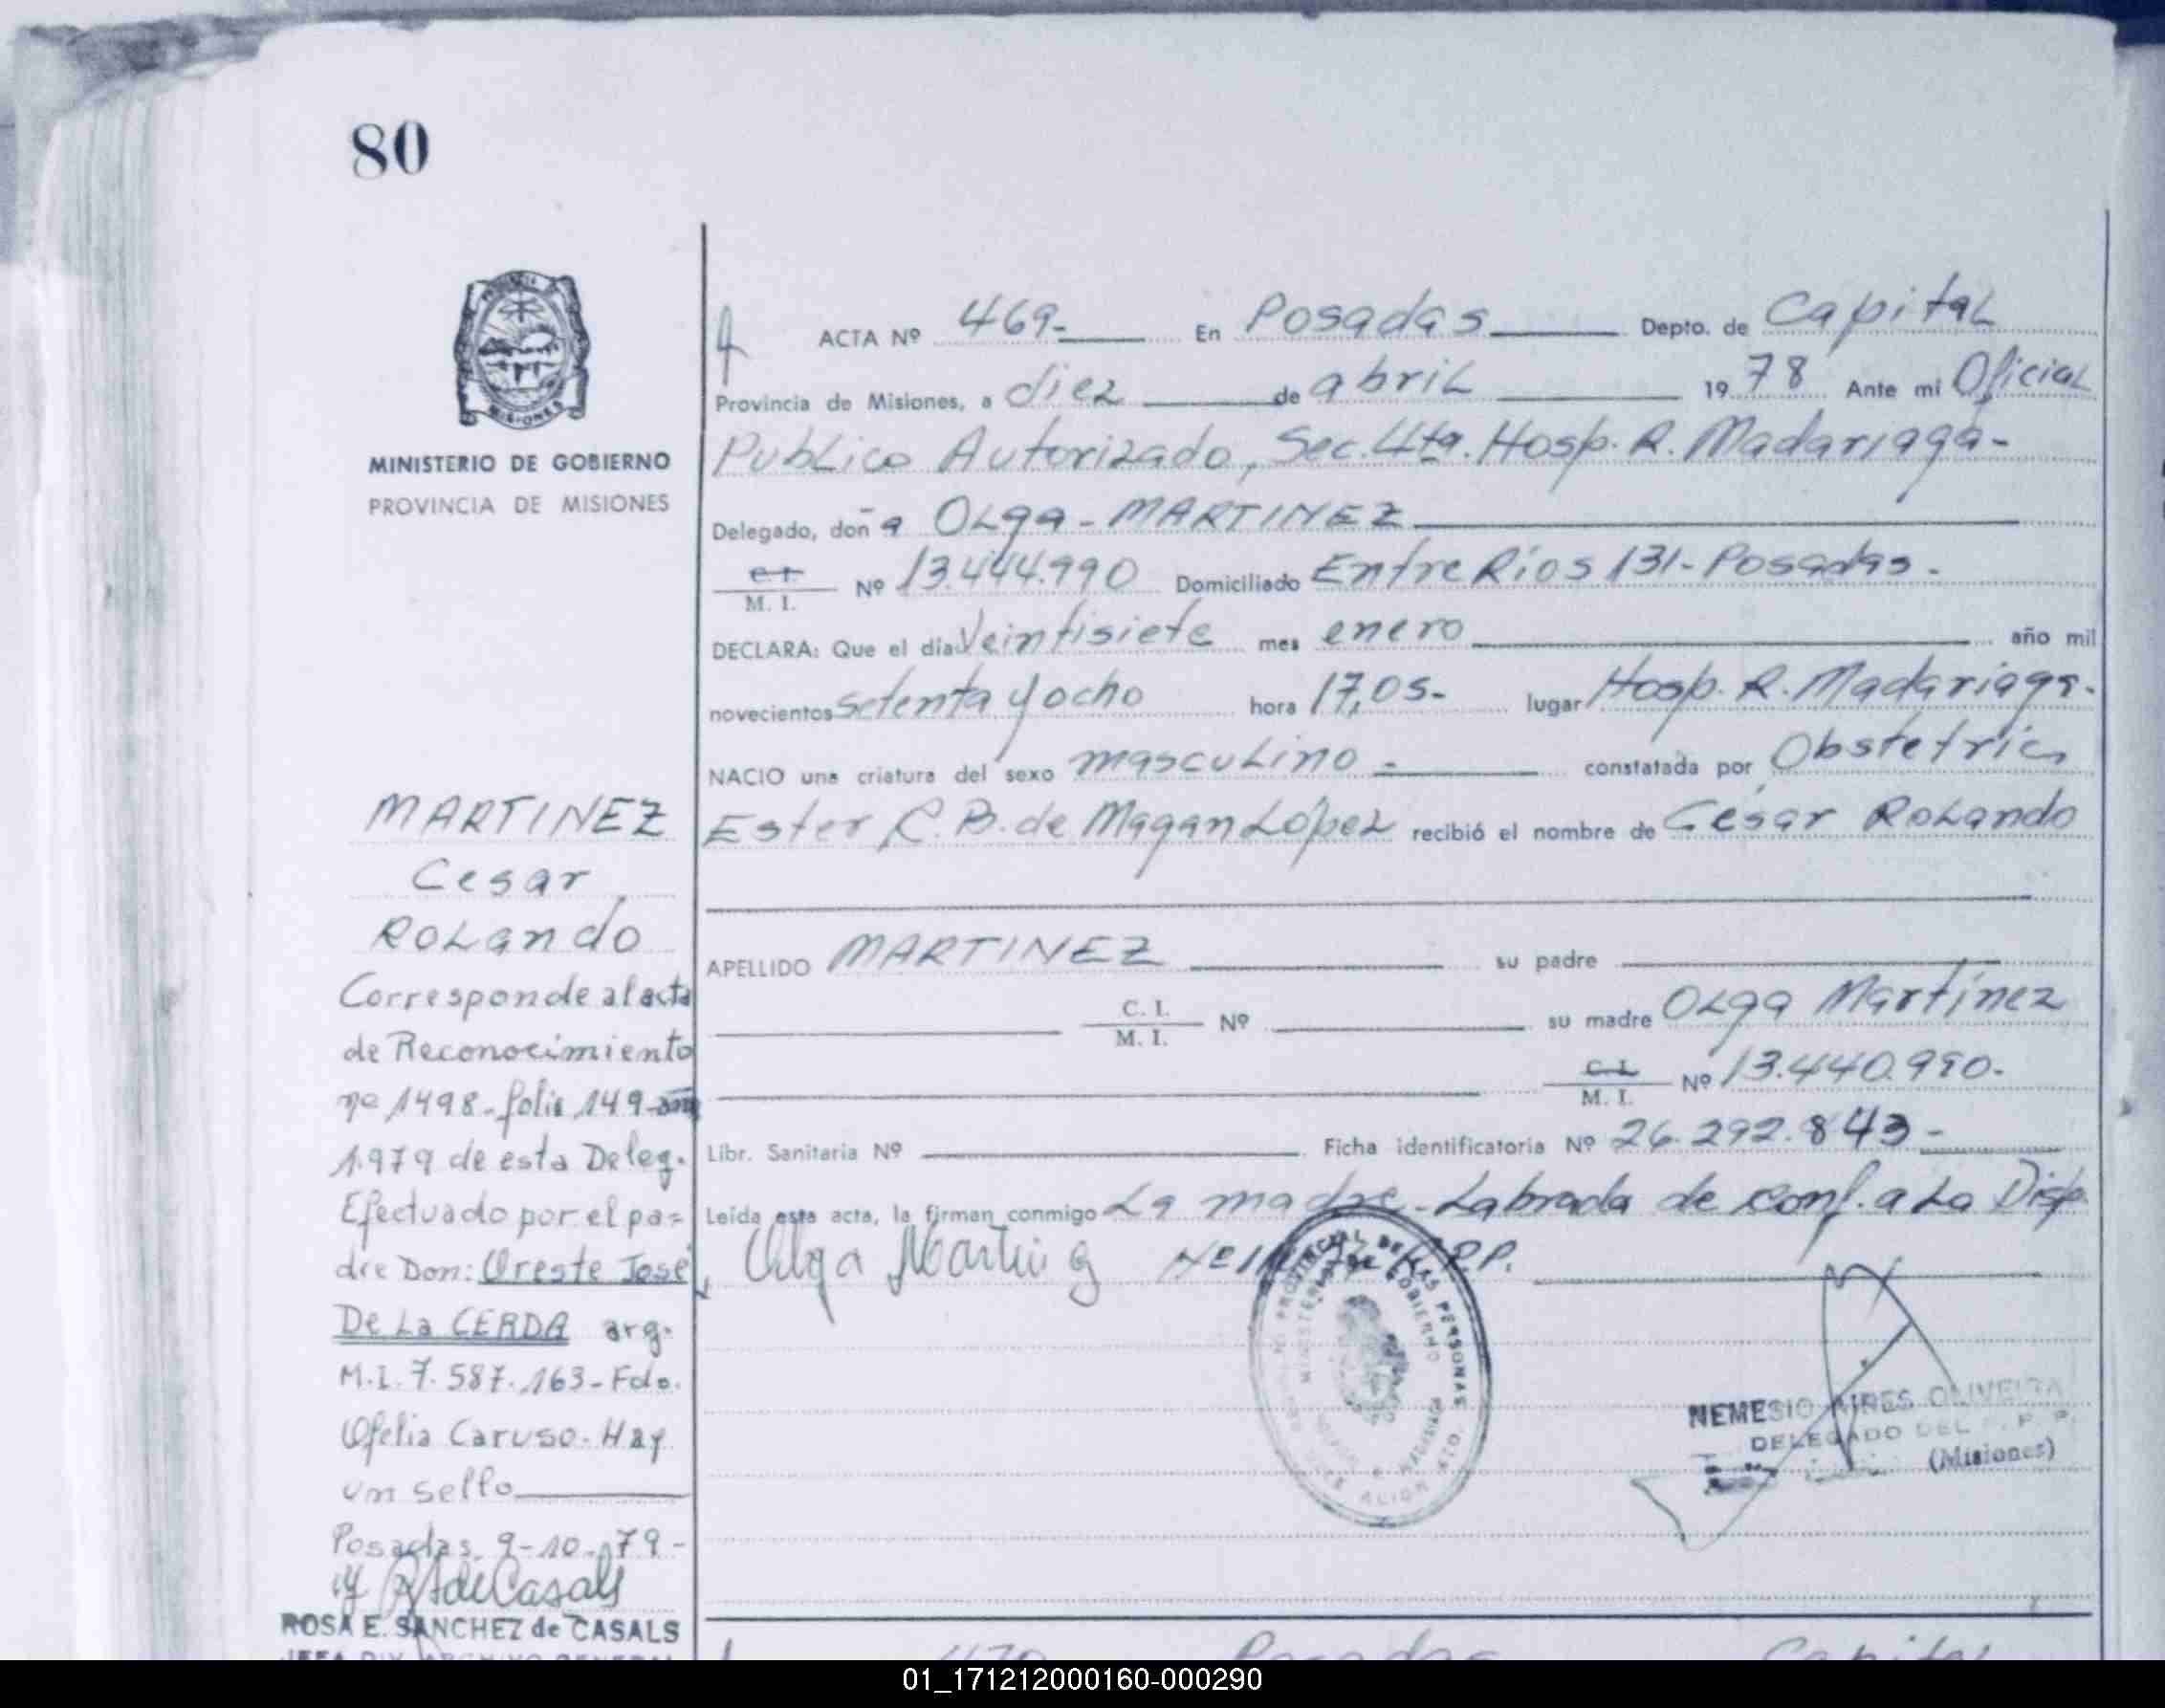 80
MINISTERIO DE GOBIERNO
PROVINCIA DE MISIONES
MARTINEZ
Cesar
ROLando
Corresponde al acta
de Reconocimiento
nº 1498 - folio 149
1.979 de esta Deleg.
Efectuado por el pa=
dre Don: Oreste José
De La CERDA arg.
M.I. 7.587.163 - Fdo.
Ofelia Caruso - Hay
un sello
Posadas, 9-10-79-
ROSA E. SANCHEZ de CASALS
ACTA Nº 469- En Posadas Depto. de Capital
Provincia de Misiones, a diez de abril 1978 Ante mi Oficial
Publico Autorizado, Sec. 4ta. Hosp. R. Madariaga-
Delegado, doña Olga - MARTINEZ
C.I. M. I. Nº 13.444.990 Domiciliado Entre Ríos 131 - Posadas -
DECLARA: Que el día Veintisiete mes enero año mil
novecientos setenta y ocho hora 17,05- lugar Hosp. R. Madariaga-
NACIO una criatura del sexo masculino - constatada por Obstetrica
Ester C. B. de Magan López recibió el nombre de César Rolando
APELLIDO MARTINEZ su padre
C. I. M. I. Nº su madre Olga Martínez
C. I. M. I. Nº 13.440.990-
Libr. Sanitaria Nº Ficha identificatoria Nº 26.292.843-
Leída esta acta, la firman conmigo La madre - Labrada de conf. a La Disp.
Olga Martinez
NEMESIO AIRES OLIVEIRA
DELEGADO DEL
(Misiones)
470 Posadas Capital
01_171212000160-000290